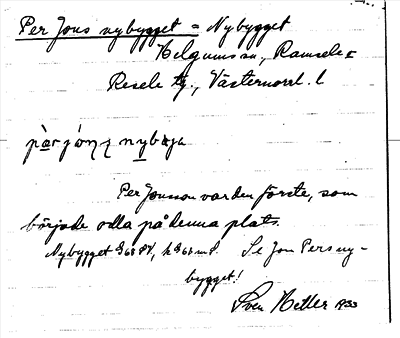 Per Jons nybygget = Nybygget
Helgums sn, Ramsele o
Resele tg., Västernorrl. l
pàr jónz nybǝja
Per Jonsson var den förste, som
började odla på denna plats.
Nybygget Se Jon Persny-
bygget!
Sven Hetter 1933